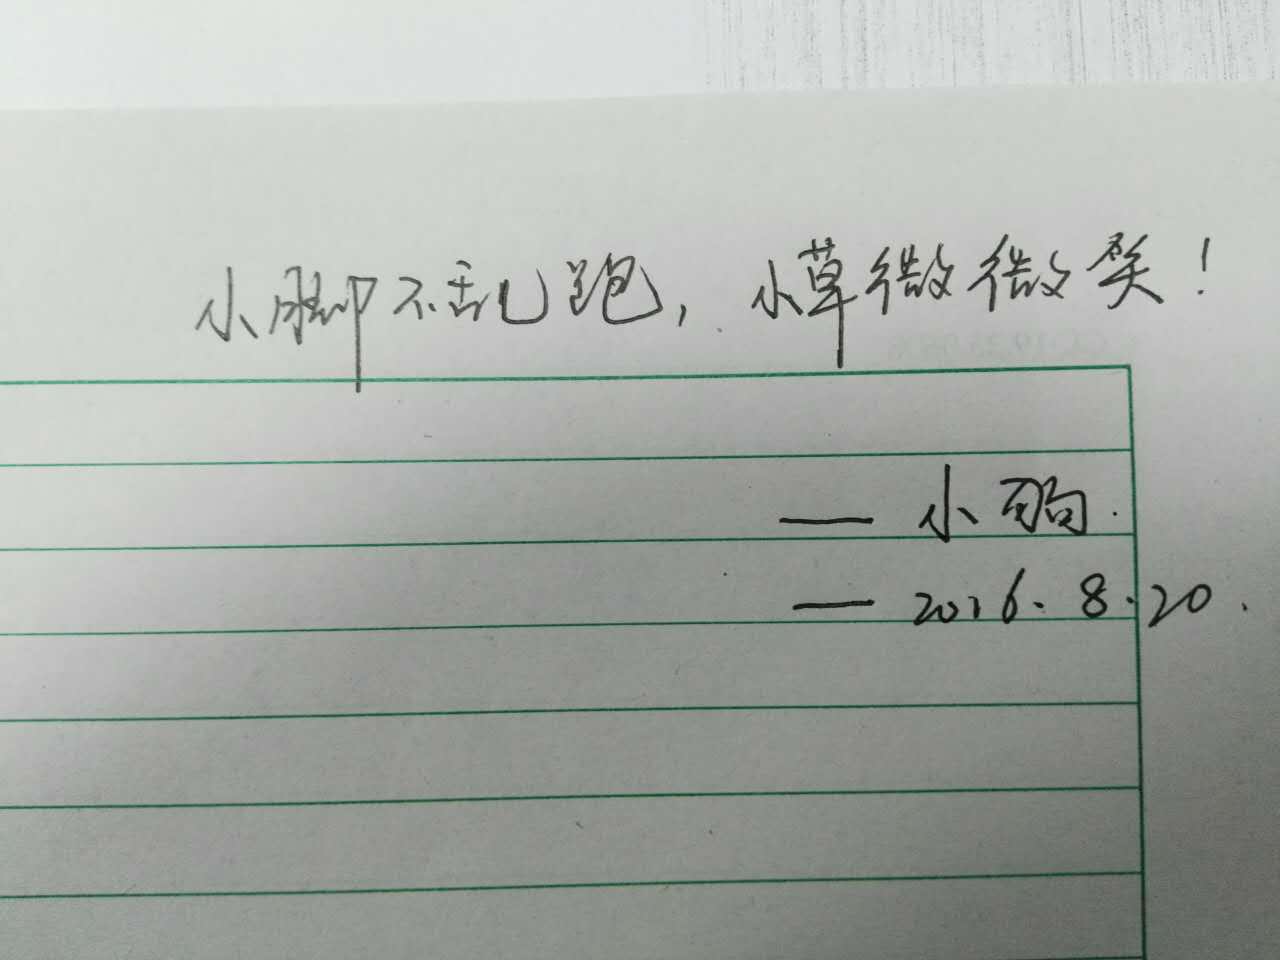 小脚不乱跑，小草微微笑！
— 小
— 2016.8.20.